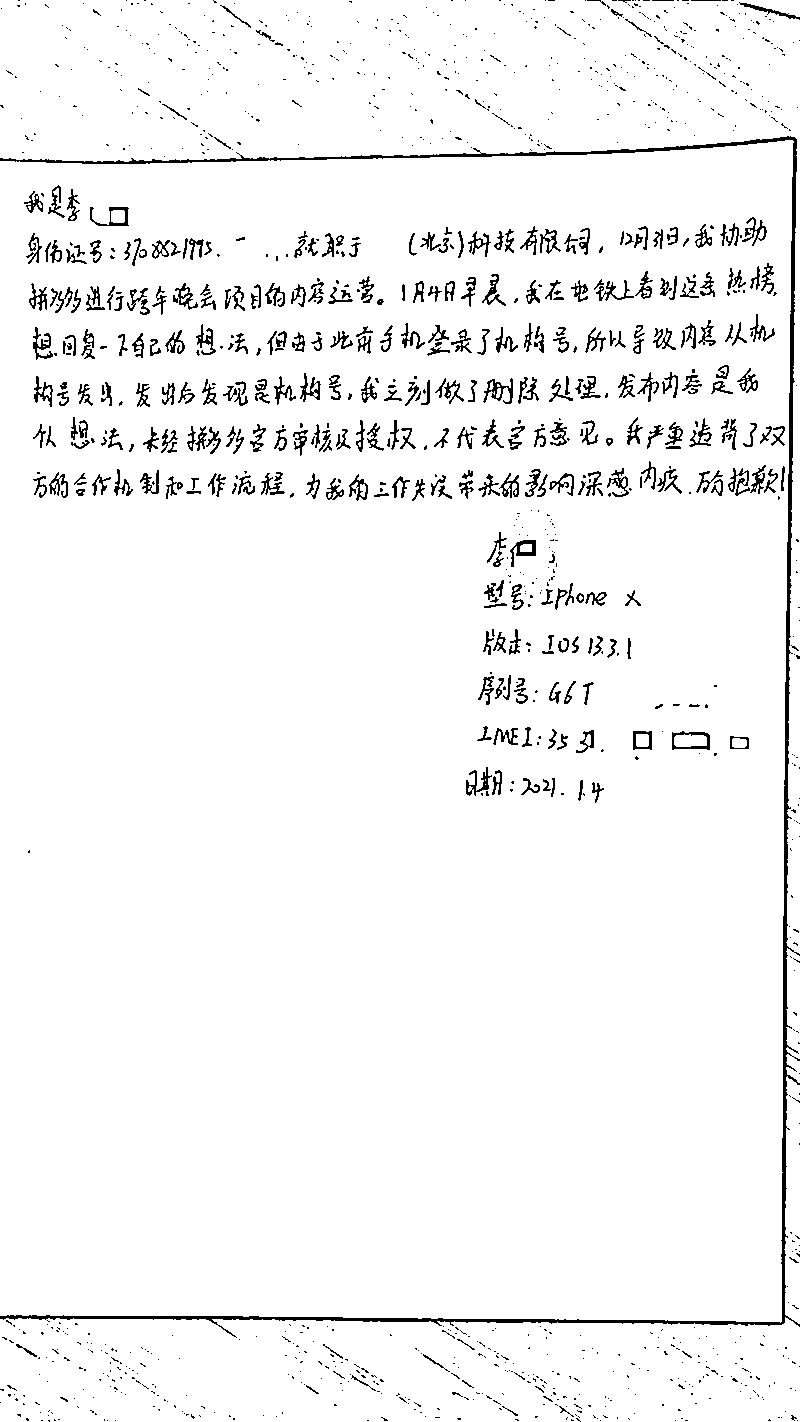 我是李
身份证号：3708821995. 就职于 (北京)科技有限公司，12月31日，我协助
拼多多进行跨年晚会项目的内容运营。1月4日早晨，我在地铁上看到这条热榜，
想回复一下自己的想法，但由于此前手机登录了机构号，所以导致内容从机
构号发出，发出后发现是机构号，我立刻做了删除处理，发布内容是我
个人想法，未经拼多多官方审核及授权，不代表官方意见。我严重违背了双
方的合作机制和工作流程，为我的工作失误带来的影响深感内疚、抱歉！
李
型号：Iphone X
版本：IOS 13.3.1
序列号：G6T
IMEI：35
日期：2021.1.4